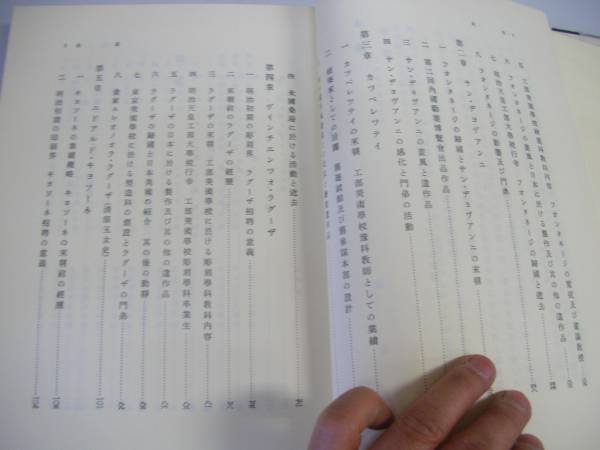 五 工部美術學校繪畫科教科内容 フォンタネージの實技及び畫論教授
六 フォンタネージの畫風と日本に於ける製作及び其の他の遺作品
七 明治天皇工部大學校行幸 フォンタネージの歸國と逝去
八 フォンタネージの影響及び門弟
第二章 サン・ヂョヴアンニ
一 フォンタネージの歸國とサン・ヂョヴアンニの來朝
二 第二回内國勸業博覽會出品作品
三 サン・ヂョヴアンニの畫風と遺作品
四 サン・ヂョヴアンニの感化と門弟の活動
第三章 カツペレツテイ
一 カツペレツテイの來朝 工部美術學校豫科教師としての業績
二 建築家としての活躍 舊遊就館及び舊參謀本部の設計
四 米國桑港に於ける活動と逝去
第四章 ヴィンチエンツォ・ラグーザ
一 明治初期の彫刻界 ラグーザ招聘の意義
二 來朝前のラグーザの經歷
三 ラグーザの來朝 工部美術學校に於ける彫刻學科教科内容
四 明治天皇工部大學校行幸 工部美術學校彫刻學科卒業生
五 ラグーザの日本に於ける製作及び其の他の遺作品
六 ラグーザの歸國と日本美術の紹介 其の後の動靜
七 東京美術學校に於ける塑造科の創設とラグーザの門弟
八 畫家エレオノオラ・ラグーザ(淸原玉女史)
第五章 エドアルド・キヨソーネ
一 キヨソーネの業績概略 キヨソーネの來朝前の經歷
二 明治初期の銅版界 キヨソーネ招聘の意義